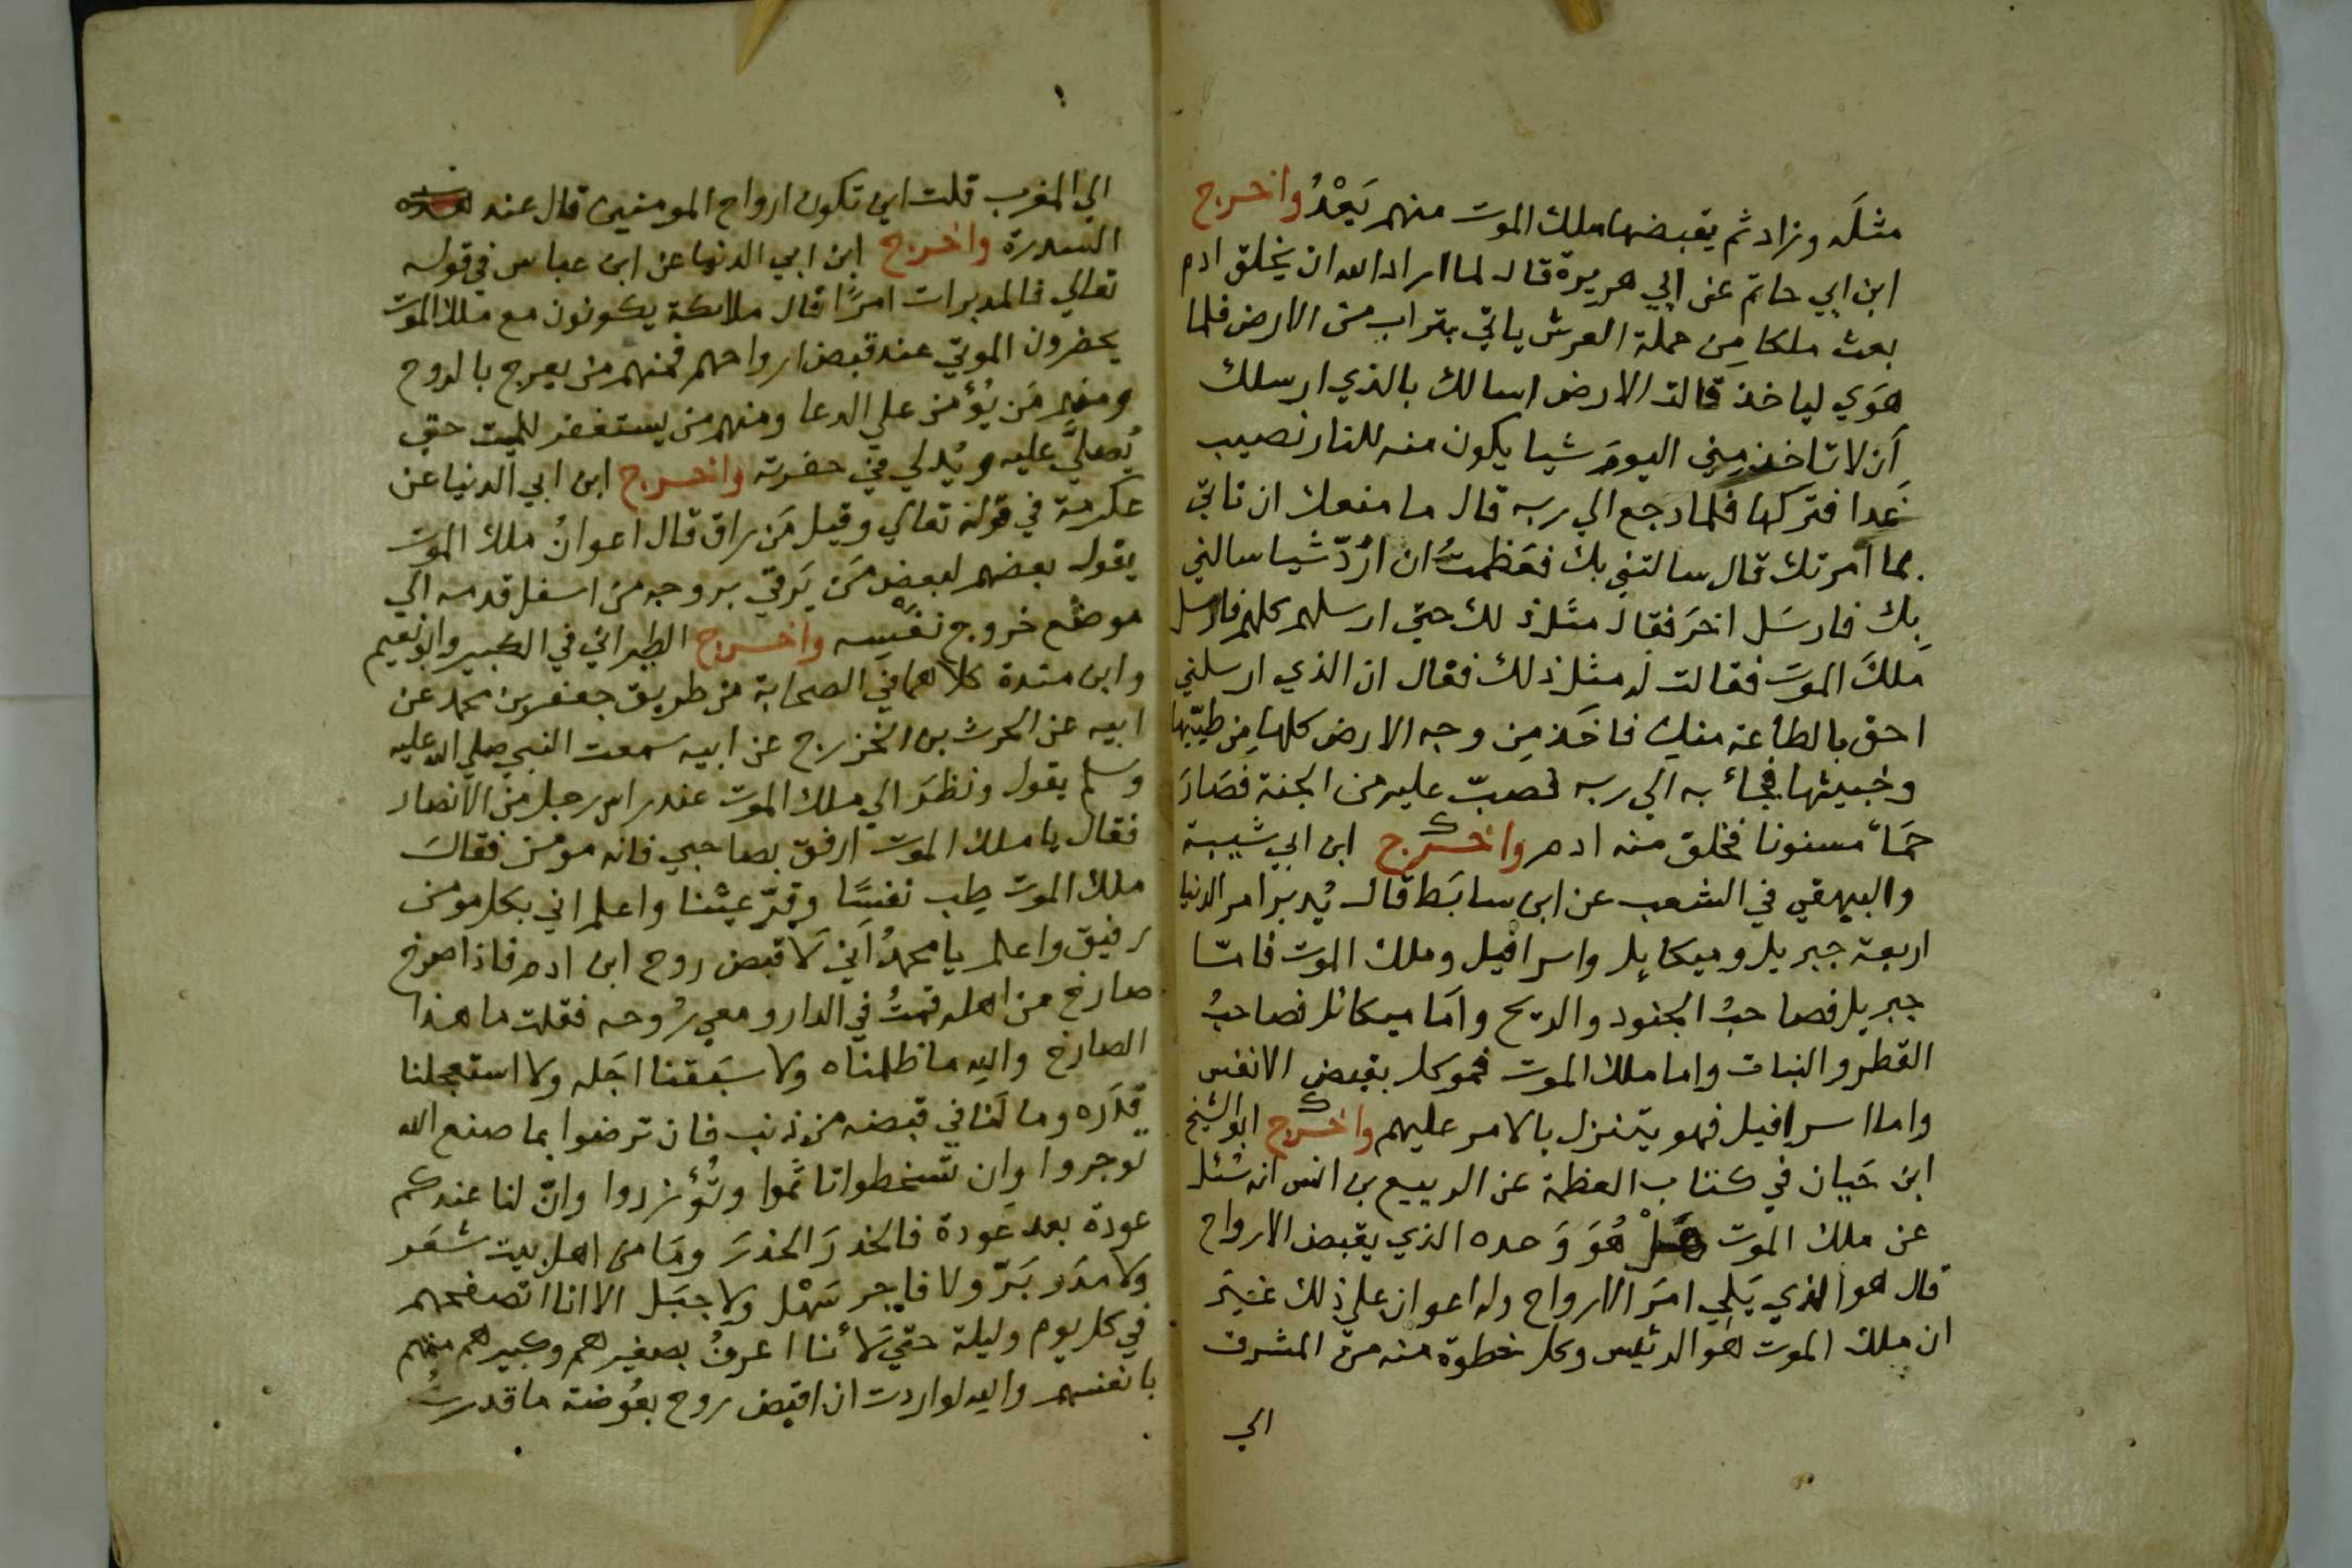 مثلَه وزاد ثم يقبضها ملك الموت منهم بَعْدُ واخرج
ابن ابي حاتم عن ابي هريرة قال لما اراد الله ان يخلق ادم
بعث ملكا مِن حملة العرش ياتي بتراب من الارض فلما
هَوَي لياخذ قالت الارض اسالك بالذي ارسلك
اَن لا تاخذ مِني اليومَ شيا يكون منه للنار نصيب
غَدا فتركها فلما رجع الي ربه قال ما منعك ان تاتي
بما امرتك قال سالتني بك فعَظمتُ ان ارُدّ شيا سالني
بِك فارسَل اخرَ فقال مثل ذلك حتي ارسلهم كلهم فارسل
مَلكَ الموت فقالت له مثل ذلك فقال ان الذي ارسلني
احق بالطاعة منكِ فاخَذ مِن وجه الارض كلها مِن طيّبها
وخبيثها فجاء به الي ربه فصبّ عليه من الجنة فصَارَ
حَمَاً مسنونا فخلق منه ادم واخرج ابن ابي شيبة
والبيهقي في الشعب عن ابن سابَط قال يُدبر امر الدنيا
اربعة جبريل وميكايِل واسرافيل وملك الموت فامّا
جبريل فصاحبُ الجنود والريح وامَا ميكائل فصاحبُ
القطر والنبات واما ملك الموت فموكل بقبض الانفس
واما اسرافيل فهو يتنزل بالامر عليهم واخرج ابو الشيخ
ابن حَيان في كتاب العظمة عن الربيع بن انس انه سُئل
عن ملك الموت هَلْ هُوَ وَحده الذي يقبض الارواح
قال هو الذي يَلي امرَ الارواح وله اعوان علي ذلك غيرَ
ان ملك الموت هو الرئيس وكل خطوة منه من المشرق
الي
الي المغرب قلت اين تكون ارواح المومنين قال عند
السدرة واخرج ابن ابي الدنيا عن ابن عباس في قوله
تعالي فالمدبرات امرًا قال ملايكة يكونون مع ملك الموت
يحضرون الموتي عند قبض ارواحهم فمنهم من يعرج بالروح
ومنهم مَن يُؤَمن علي الدعا ومنهم من يستغفر للميت حتي
يُصلَّي عليه ويُدلي في حفرته واخرج ابن ابي الدنيا عن
عكرمة في قوله تعالي وقيل مَن راق قال اعوانُ ملك الموت
يقول بعضهم لبعض مَن يَرقي بروحه من اسفل قدمه الي
موضع خروج نفسِه واخرج الطبراني في الكبير وابو نعيم
وابن مندة كلاهما في الصحابة من طريق جعفر بن محمد عن
ابيه عن الحرث بن الخزرج عن ابيه سمعت النبي صلي الله عليه
وسلم يقول ونظرَ الي ملك الموت عند راس رجل من الانصار
فقال يا ملك الموت ارفق بصاحبي فانه مؤمن فقال
ملك الموت طِب نفسًا وقِرّ عيْنا واعلم اني بكل مومن
رفيق واعلم يا محمدُ اَني لَاقبض روح ابن ادم فاذا صرخ
صارخ من اهله قمتُ في الدار ومعي رُوحه فقلت ما هذا
الصارخ والله ما ظلمناه ولا سبَقنا اجَله ولا استعجلنا
قَدَره وما لَنا في قبضه من ذنب فان ترضوا بما صنع الله
توجروا وان تسخطوا تاثموا وتُؤزروا وانّ لنا عندكم
عودة بعد عَودة فالحَذرَ الحذرَ ومَا من اهل بيت شعَر
ولا مدَر بَرّ ولا فاجر سَهْل ولا جبَل الا انا اتصفحهم
في كل يوم وليلة حتي لَأَنا اعرفُ بصغيرهم وكبيرهم منهم
بانفسهم والله لو اردت ان اقبض روح بعُوضة ما قدرتُ